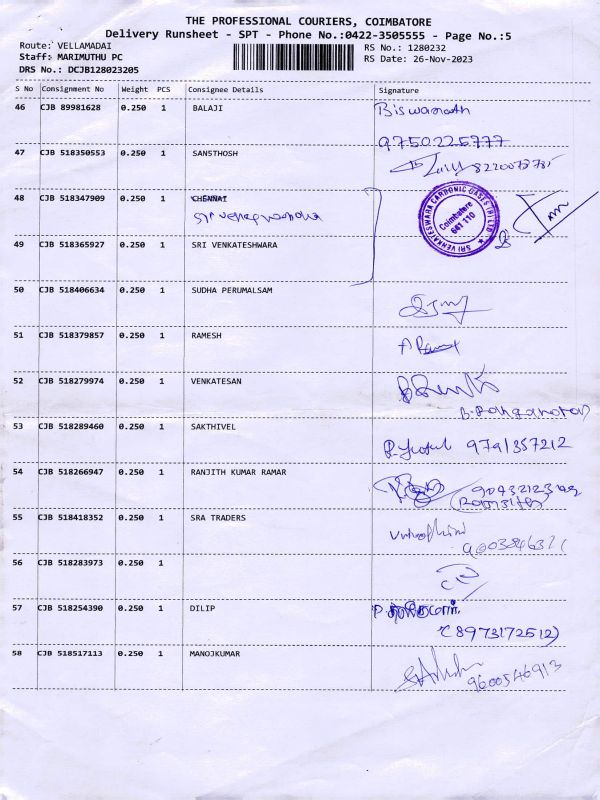 THE PROFESSIONAL COURIERS, COIMBATORE
Delivery Runsheet - SPT - Phone No.:0422-3505555 - Page No.:5
Route: VELLAMADAI
RS No.: 1280232
Staff: MARIMUTHU PC
RS Date: 26-Nov-2023
DRS No.: DCJB128023205
S No Consignment No Weight PCS Consignee Details Signature
46 CJB 89981628 0.250 1 BALAJI Biswanath
9750225777
47 CJB 518350553 0.250 1 SANSTHOSH 8220073735
48 CJB 518347909 0.250 1 CHENNAI
SRI VENKATESWARA CARBONIC GASES (P) LTD.
Coimbatore
641 110
49 CJB 518365927 0.250 1 SRI VENKATESHWARA
50 CJB 518406634 0.250 1 SUDHA PERUMALSAM
51 CJB 518379857 0.250 1 RAMESH
52 CJB 518279974 0.250 1 VENKATESAN
53 CJB 518289460 0.250 1 SAKTHIVEL 9791357212
54 CJB 518266947 0.250 1 RANJITH KUMAR RAMAR
55 CJB 518418352 0.250 1 SRA TRADERS
56 CJB 518283973 0.250 1
57 CJB 518254390 0.250 1 DILIP
(8973172512)
58 CJB 518517113 0.250 1 MANOJKUMAR
9600546913